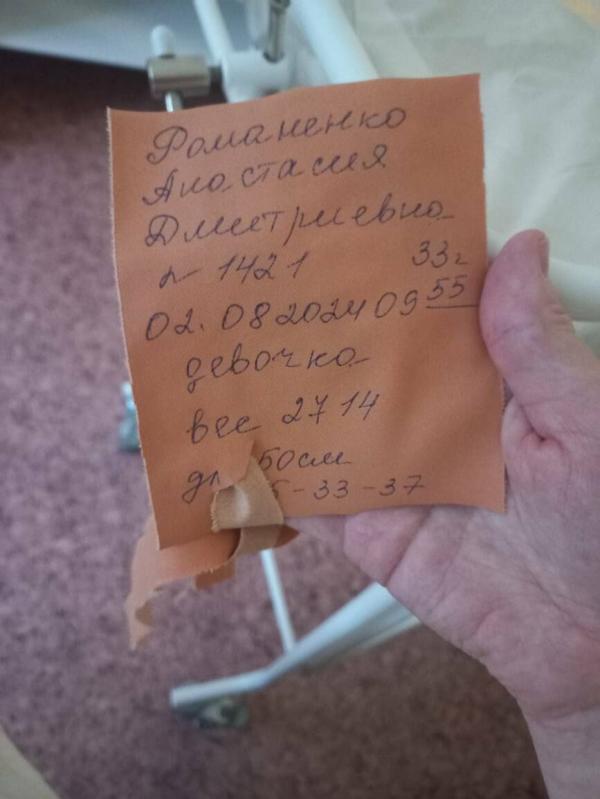 Романенко
Анастасия
Дмитриевна
№ 1421 33г
02.08 2024 09 55
девочка
вес 2714
50см
- 33 - 37